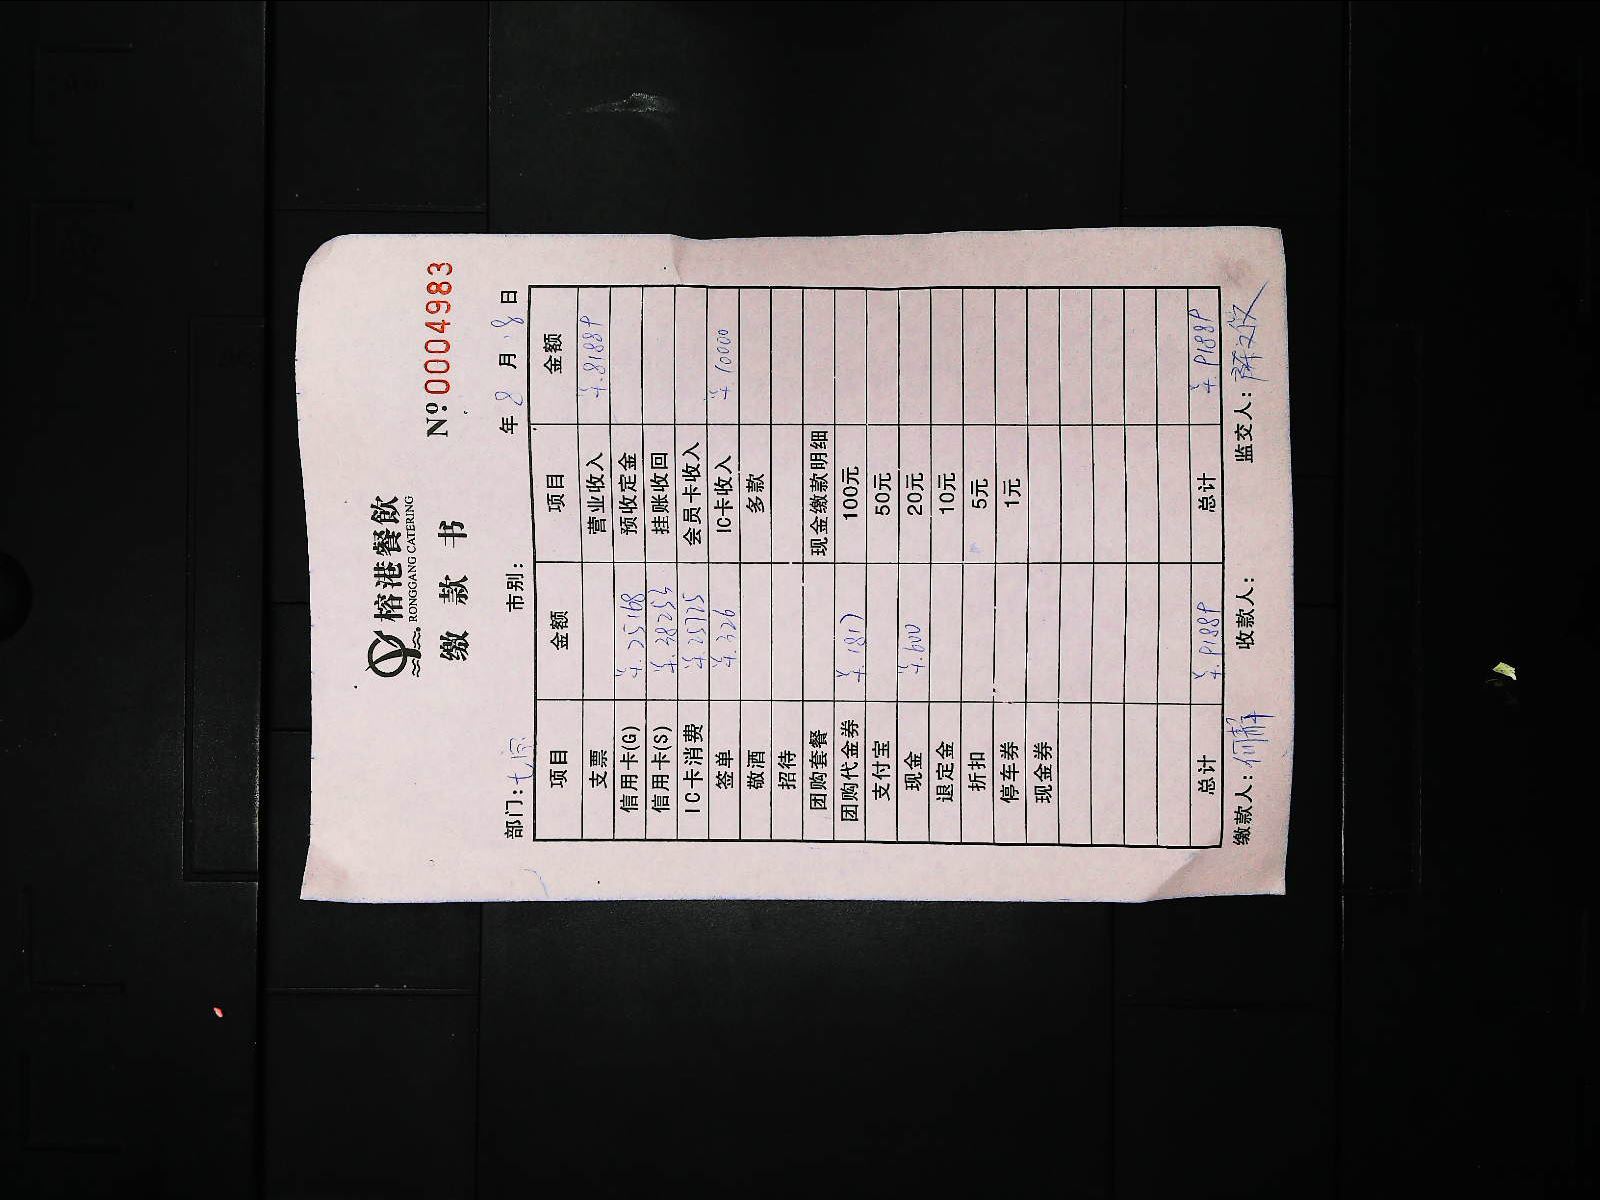 榕港餐飲
RONGGANG CATERING
缴款书 Nº:0004983
部门:七 市别: 年 8 月 8 日
项目 金额 项目 金额
支票 营业收入 ¥.81889
信用卡(G) ¥.25168 预收定金
信用卡(S) ¥.38253 挂账收回
IC卡消费 ¥.25725 会员卡收入
签单 ¥.326 IC卡收入 ¥10000
敬酒 多款
招待
团购套餐 现金缴款明细
团购代金券 ¥.1817 100元
支付宝 50元
现金 ¥.600 20元
退定金 10元
折扣 5元
停车券 1元
现金券
总计 ¥.91889 总计 ¥.91889
缴款人:何静 收款人: 监交人: